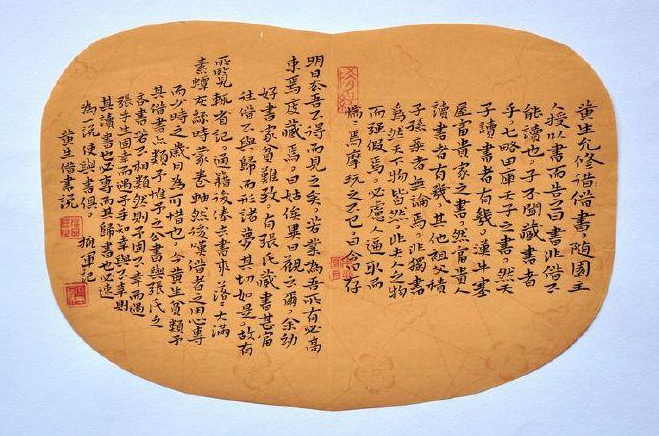 黄生允修借借書。随園主
人授以書而告之曰書非借不
能讀也。子不聞藏書者
乎七略四庫天子之書。然天
子讀書者有幾。漢牛塞
屋富貴家之書。然富貴人
讀書者有幾其他祖父積
子孫棄者無論焉。非獨書
為然天下物皆然。非夫人之物
而强假焉。必慮人逼取而
惴々焉摩玩之不已。曰今日存
明日去吾不得而見之矣。若業為吾所有必高
束焉庋藏焉。曰姑俟異日觀云爾。余幼
好書家貧難致。有張氏藏書甚富
往借不與歸而形諸夢其切如是。故有
所覽輒省記通籍後俸去書來落々大滿
素蟫灰絲時蒙卷軸然後嘆借者之用心專
而少時之歲月為可惜也。今黄生貧類予
其借書亦類予惟予之公書與張氏之
吝書若不相類然則予固不幸而遇
張乎生固幸而遇予乎知幸與不幸則
其讀書也必專而其歸書也必速
為一說使與書俱。軍記
黄生借書說